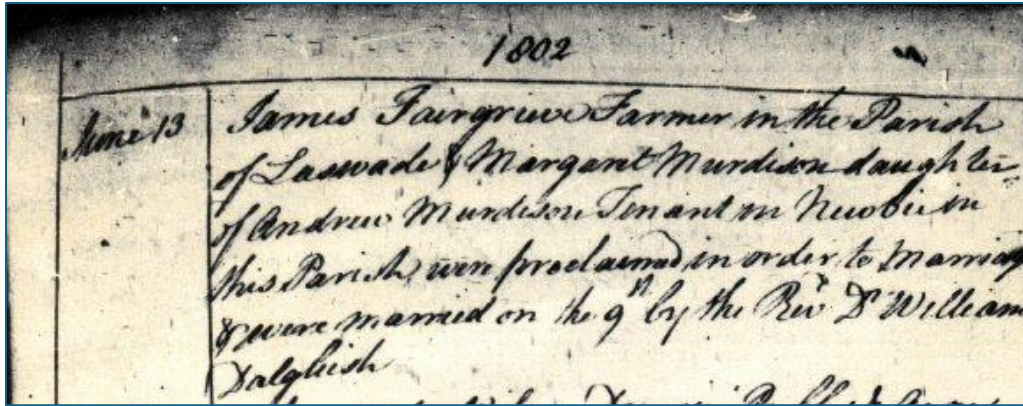 1802
June 13 James Fairgrieve Farmer in the Parish
of Laswade & Margaret Murdison daughter
of Andrew Murdison Tenant in Newbie in
this Parish, were proclaimed in order to Marriage
& were married on the 9th by the Revd Dr William
Dalgliesh